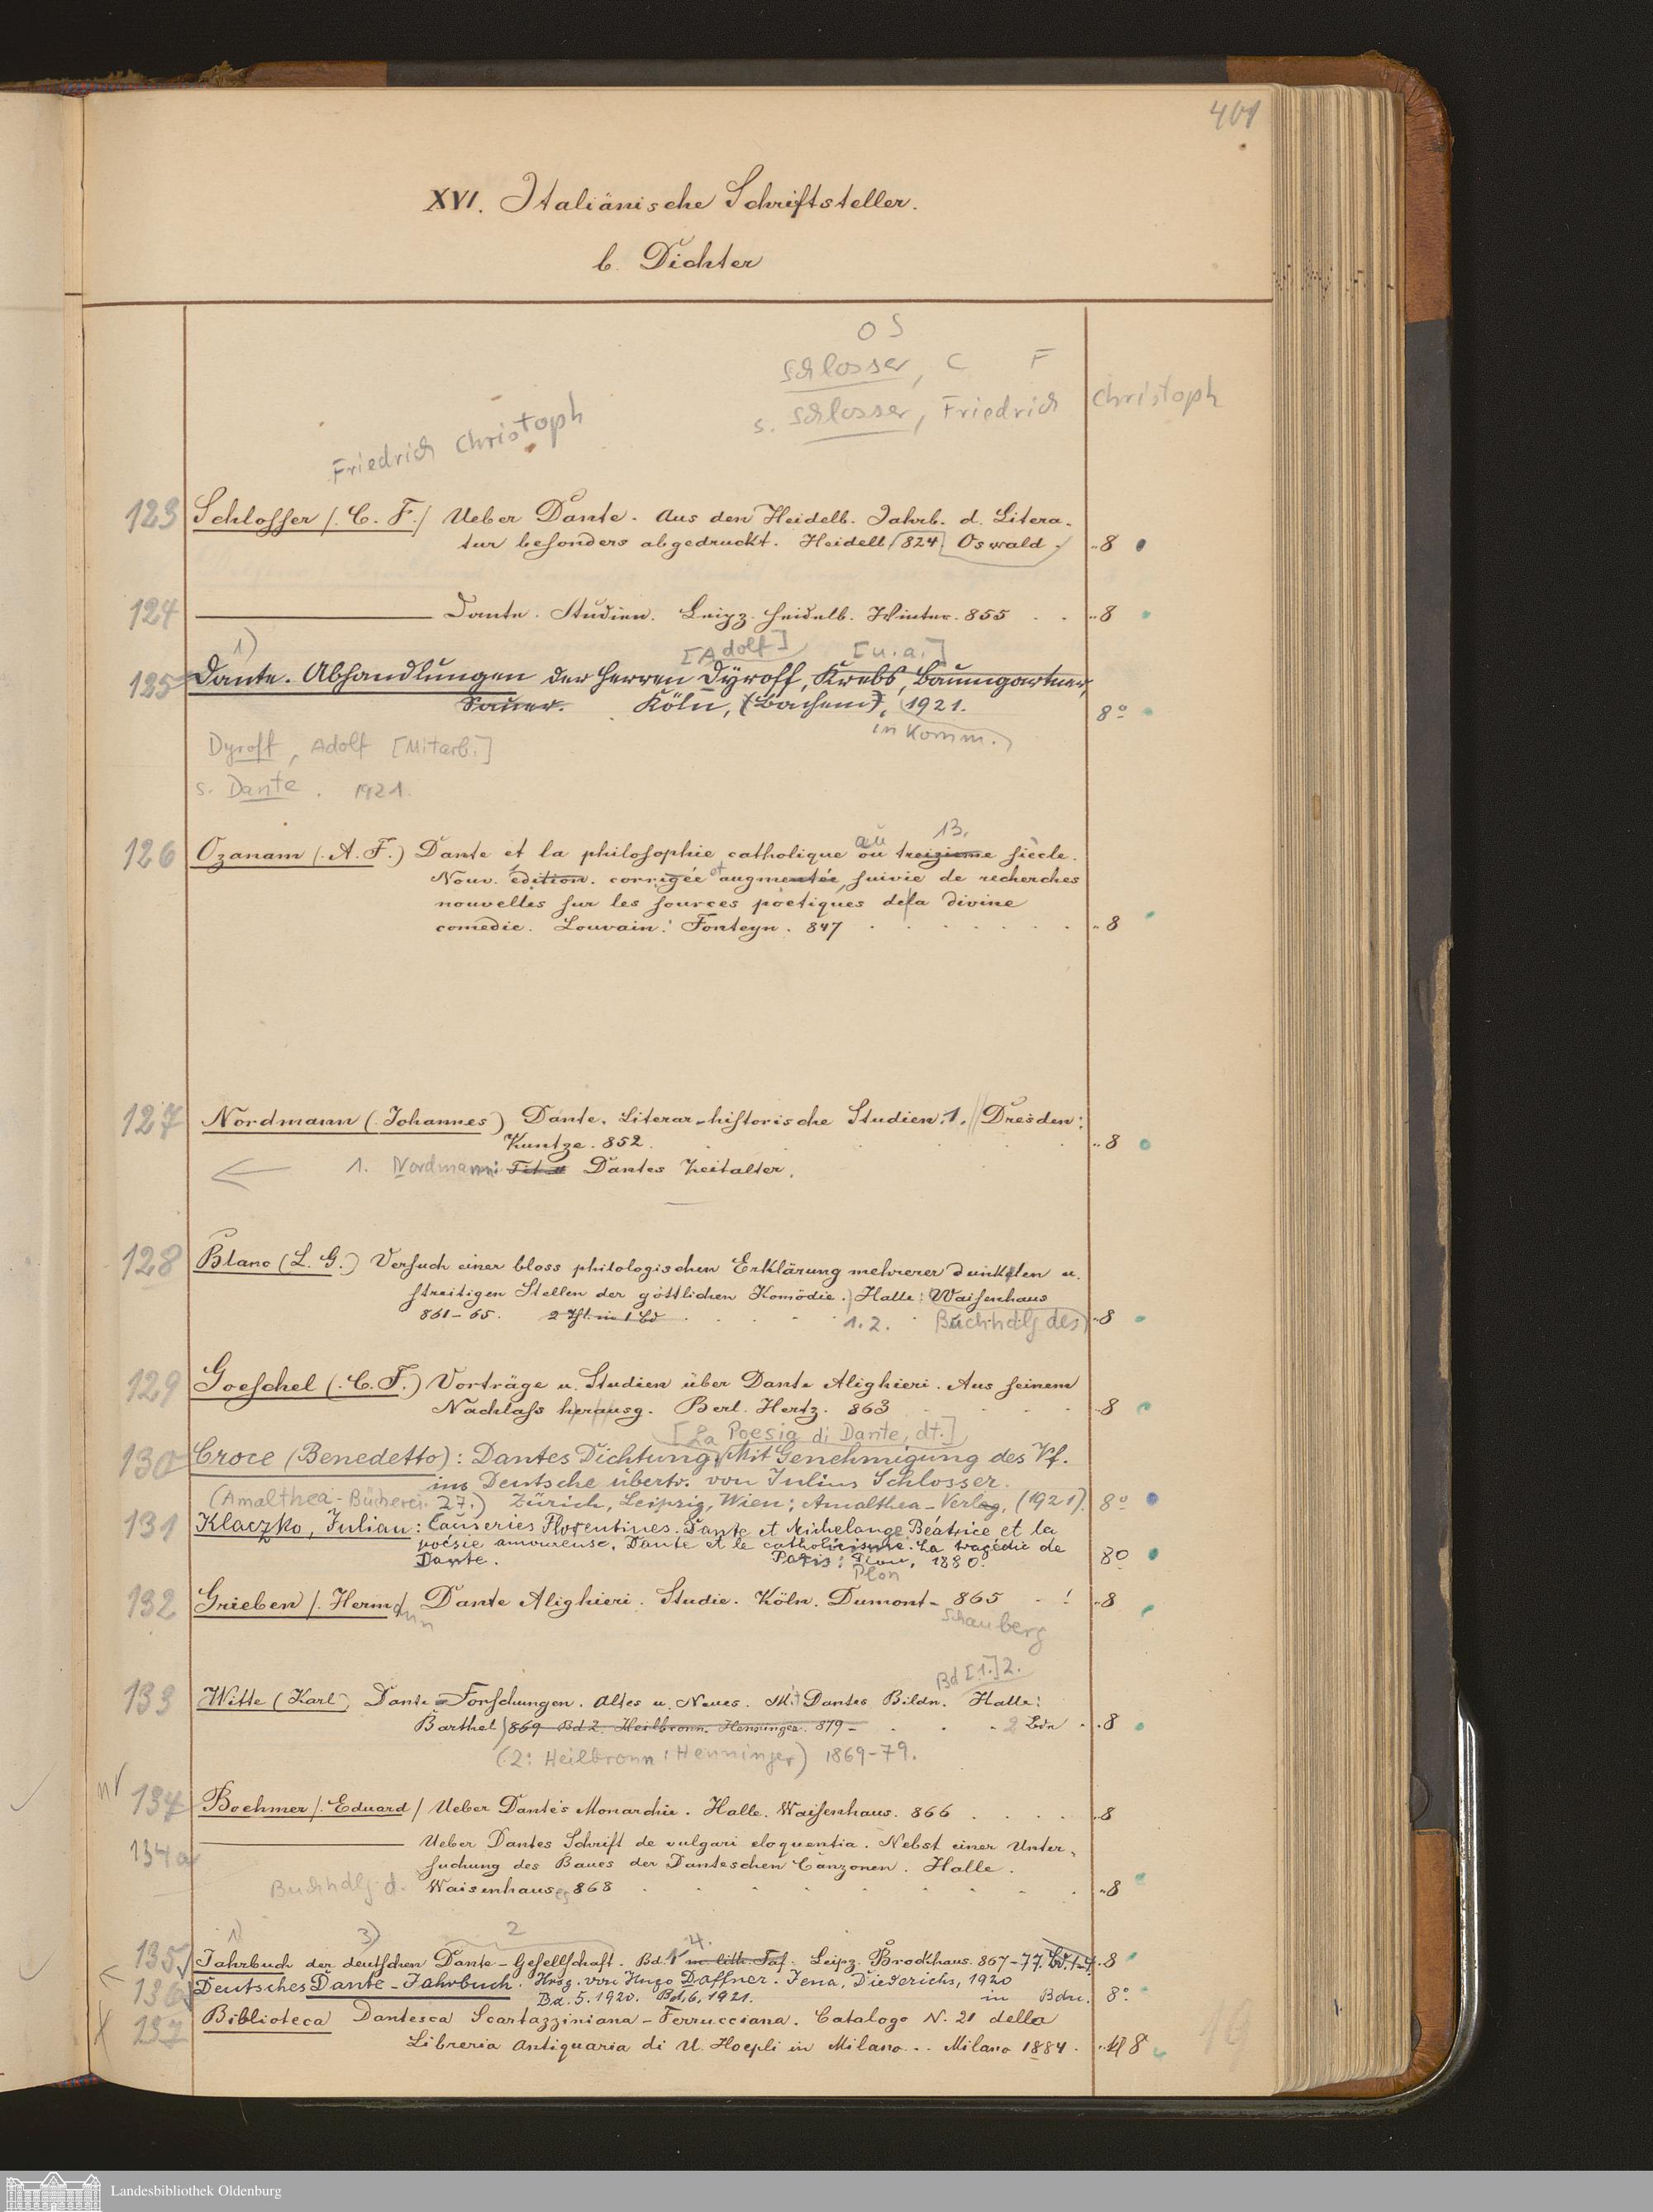 401
XVI. Italiänische Schriftsteller.
b. Dichter
O S
Schlosser, C F
s. Schlosser, Friedrich Christoph
Friedrich Christoph
123 Schlosser /. C. F./ Ueber Dante. Aus den Heidelb. Jahrb. d. Litera-
tur besonders abgedruckt. Heidelb. 824. Oswald. „8
124 ——— Dante. Studien. Leipz. Heidelb. Winter. 855 . . „8
1) [Adolf] [u. a.]
125 Dante. Abhandlungen der Herren Dyroff, Krebs, Baumgartner,
Sauer. Köln, (Bachem), 1921. 8°
in Komm.
Dyroff, Adolf [Mitarb.]
s. Dante. 1921.
au 13.
126 Ozanam (. A. F.) Dante et la philosophie catholique ou treizieme siècle.
Nouv. édition. corrigée et augmentée, suivie de recherches
nouvelles sur les sources poëtiques de la divine
comedie. Louvain: Fonteyn. 847 . . . . „8
127 Nordmann (. Johannes) Dante. Literar-historische Studien. 1. Dresden:
Kuntze. 852. „8
1. Nordmann: Tit. Dantes Zeitalter.
128 Blanc (L. G.) Versuch einer bloss philologischen Erklärung mehrerer dunklen u.
streitigen Stellen der göttlichen Komödie. Halle: Waisenhaus
861-65. 2 Thl. in 1 Bd 1. 2. Buchhdlg des „8
129 Goeschel (. C. F.) Vorträge u. Studien über Dante Alighieri. Aus seinem
Nachlass herausg. Berl. Hertz. 863 „8
[La Poesia di Dante, dt.]
130 Croce (Benedetto): Dantes Dichtung. Mit Genehmigung des Vf.
ins Deutsche übertr. von Julius Schlosser.
(Amalthea-Bücherei. 27.) Zürich, Leipzig, Wien: Amalthea-Verlag, (1921). 8°
131 Klaczko, Julian: Causeries Florentines. Dante et Michelange. Béatrice et la
poésie amoureuse. Dante et le catholicisme. La tragédie de
Dante. Paris: Plon, 1880. 8°
Plon
132 Grieben /. Hermann/ Dante Alighieri. Studie. Köln. Dumont- 865 . ! „8
Schauberg
Bd [1.] 2.
133 Witte (Karl) Dante-Forschungen. Altes u. Neues. Mit Dantes Bildn. Halle:
Barthel 869 Bd 2. Heilbronn. Henninger. 879- 2 Bde . „8
(2: Heilbronn: Henninger) 1869-79.
134 Boehmer /. Eduard / Ueber Dante's Monarchie. Halle. Waisenhaus. 866 . . . . „8
134a ——— Ueber Dantes Schrift de vulgari eloquentia. Nebst einer Unter-
suchung des Baues der Danteschen Canzonen. Halle.
Buchhdlg. d. Waisenhauses 868 „8
1) 3) 2 4.
135 Jahrbuch der deutschen Dante-Gesellschaft. Bd. 1 m. lith. Taf. Leipz. Brockhaus. 867-77. Bd. 1-4. 8
136 Deutsches Dante-Jahrbuch. Hrsg. von Hugo Daffner. Jena, Diederichs, 1920
Bd. 5. 1920. Bd. 6, 1921. in Bdn. 8°
137 Biblioteca Dantesca Scartazziniana-Ferrucciana. Catalogo N. 21 della
Libreria Antiquaria di U. Hoepli in Milano... Milano 1884. 8
19
Landesbibliothek Oldenburg